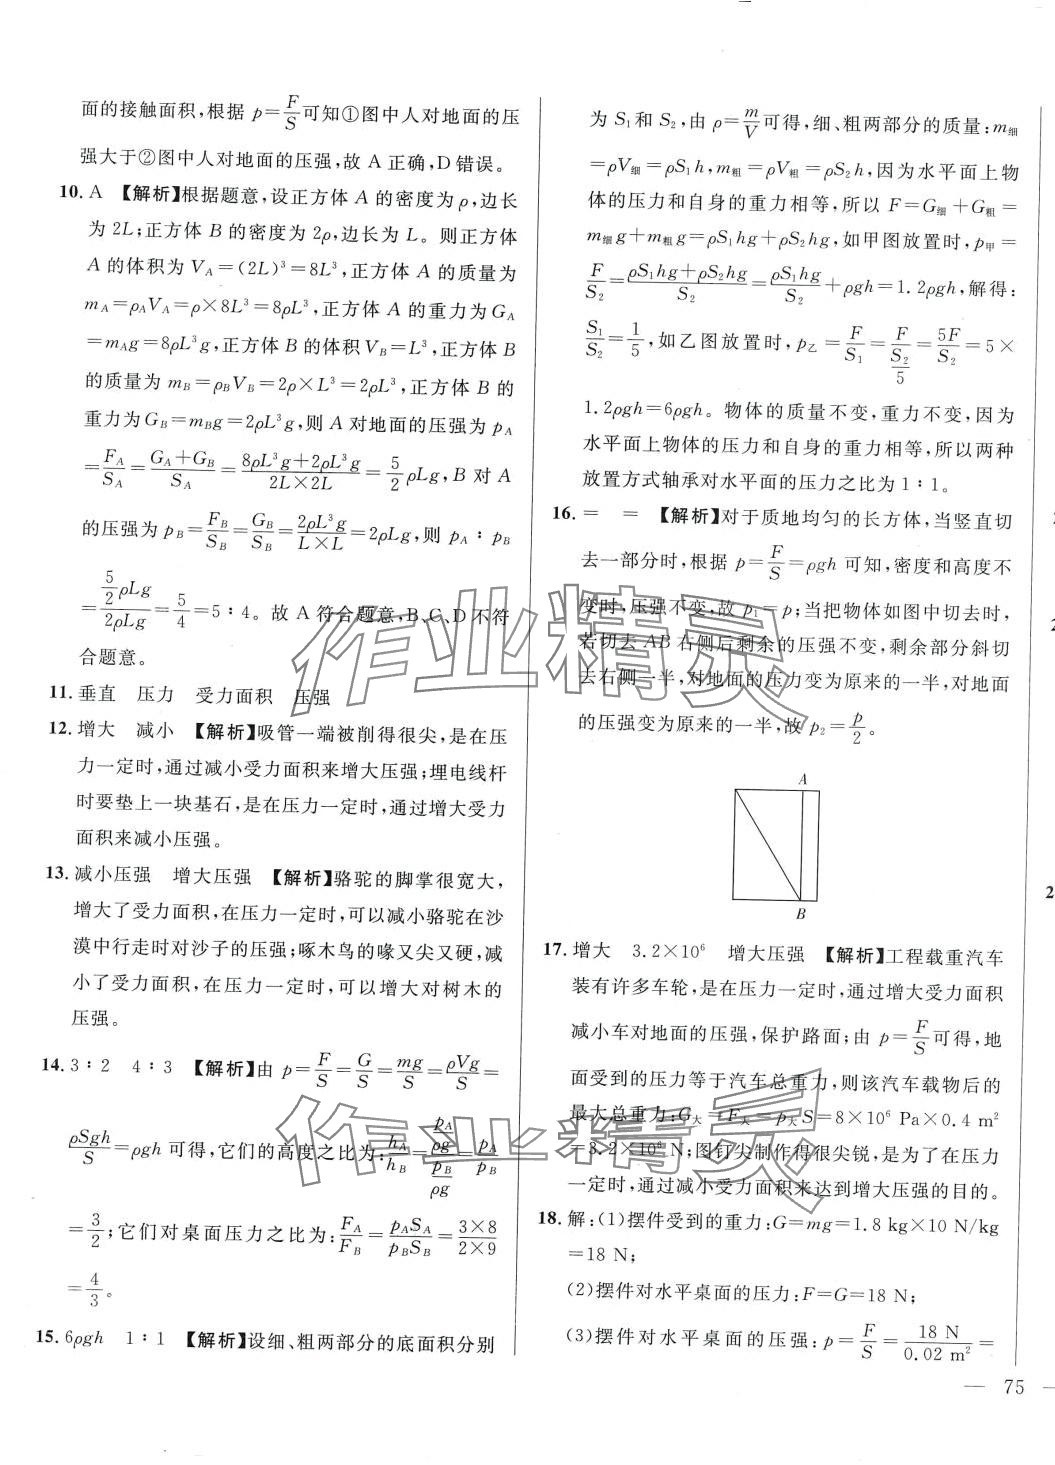 面的接触面积,根据 p=F/S可知①图中人对地面的压
强大于②图中人对地面的压强,故 A 正确,D 错误。
10. A 【解析】根据题意,设正方体 A 的密度为ρ,边长
为 2L;正方体 B 的密度为 2ρ,边长为 L。则正方体
A 的体积为 V_A=(2L)³=8L³,正方体 A 的质量为
m_A=ρ_AV_A=ρ×8L³=8ρL³,正方体 A 的重力为 G_A
=m_Ag=8ρL³g,正方体 B 的体积 V_B=L³,正方体 B
的质量为 m_B=ρ_BV_B=2ρ×L³=2ρL³,正方体 B 的
重力为 G_B=m_Bg=2ρL³g,则 A 对地面的压强为 p_A
=F_A/S_A=(G_A+G_B)/S_A=(8ρL³g+2ρL³g)/(2L×2L)=5/2ρLg,B 对 A
的压强为 p_B=F_B/S_B=G_B/S_B=2ρL³g/(L×L)=2ρLg,则 p_A∶p_B
=(5/2ρLg)/(2ρLg)=(5/2)/2=5/4=5∶4。故 A 符合题意,B、C、D 不符
合题意。
11. 垂直 压力 受力面积 压强
12. 增大 减小 【解析】吸管一端被削得很尖,是在压
力一定时,通过减小受力面积来增大压强;埋电线杆
时要垫上一块基石,是在压力一定时,通过增大受力
面积来减小压强。
13. 减小压强 增大压强 【解析】骆驼的脚掌很宽大,
增大了受力面积,在压力一定时,可以减小骆驼在沙
漠中行走时对沙子的压强;啄木鸟的喙又尖又硬,减
小了受力面积,在压力一定时,可以增大对树木的
压强。
14. 3∶2 4∶3 【解析】由 p=F/S=G/S=mg/S=ρVg/S=
ρSgh/S=ρgh 可得,它们的高度之比为:h_A/h_B=(p_A/ρg)/(p_B/ρg)=p_A/p_B
=3/2;它们对桌面压力之比为:F_A/F_B=p_AS_A/p_BS_B=3×8/2×9
=4/3。
15. 6ρgh 1∶1 【解析】设细、粗两部分的底面积分别
为 S₁和 S₂,由 ρ=m/V可得,细、粗两部分的质量:m细
=ρV细=ρS₁h,m粗=ρV粗=ρS₂h,因为水平面上物
体的压力和自身的重力相等,所以 F=G细+G粗=
m细g+m粗g=ρS₁hg+ρS₂hg,如甲图放置时,p甲=
F/S₂=(ρS₁hg+ρS₂hg)/S₂=ρS₁hg/S₂+ρgh=1.2ρgh,解得:
S₁/S₂=1/5,如乙图放置时,p乙=F/S₁=F/(S₂/5)=5F/S₂=5×
1.2ρgh=6ρgh。物体的质量不变,重力不变,因为
水平面上物体的压力和自身的重力相等,所以两种
放置方式轴承对水平面的压力之比为 1∶1。
16. = = 【解析】对于质地均匀的长方体,当竖直切
去一部分时,根据 p=F/S=ρgh 可知,密度和高度不
变时,压强不变,故 p₁=p;当把物体如图中切去时,
若切去 AB 右侧后剩余的压强不变,剩余部分斜切
去右侧一半,对地面的压力变为原来的一半,对地面
的压强变为原来的一半,故 p₂=p/2。
A
B
17. 增大 3.2×10⁶ 增大压强 【解析】工程载重汽车
装有许多车轮,是在压力一定时,通过增大受力面积
减小车对地面的压强,保护路面;由 p=F/S可得,地
面受到的压力等于汽车总重力,则该汽车载物后的
最大总重力:G大=F大=p大S=8×10⁶ Pa×0.4 m²
=3.2×10⁶ N;图钉尖制作得很尖锐,是为了在压力
一定时,通过减小受力面积来达到增大压强的目的。
18. 解:(1)摆件受到的重力:G=mg=1.8 kg×10 N/kg
=18 N;
(2)摆件对水平桌面的压力:F=G=18 N;
(3)摆件对水平桌面的压强:p=F/S=18 N/0.02 m²=
— 75 —
作业精灵
作业精灵